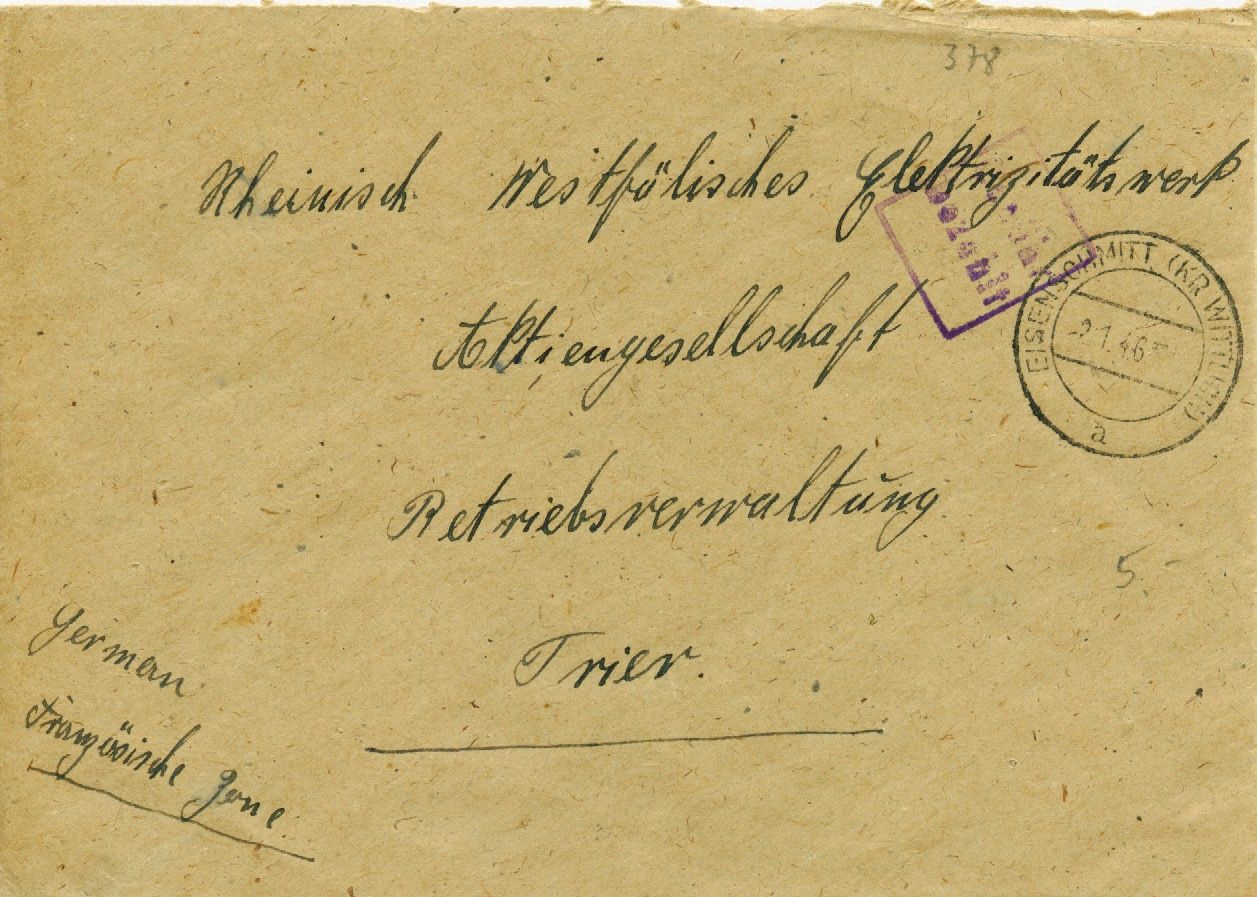 378
Rheinisch Westfälisches Elektrizitätswerk
bezahlt
EISENSCHMITT (KR WITTLICH)
-2.1.46
a
Aktiengesellschaft
Betriebsverwaltung
5.-
Trier.
German
Französische Zone.